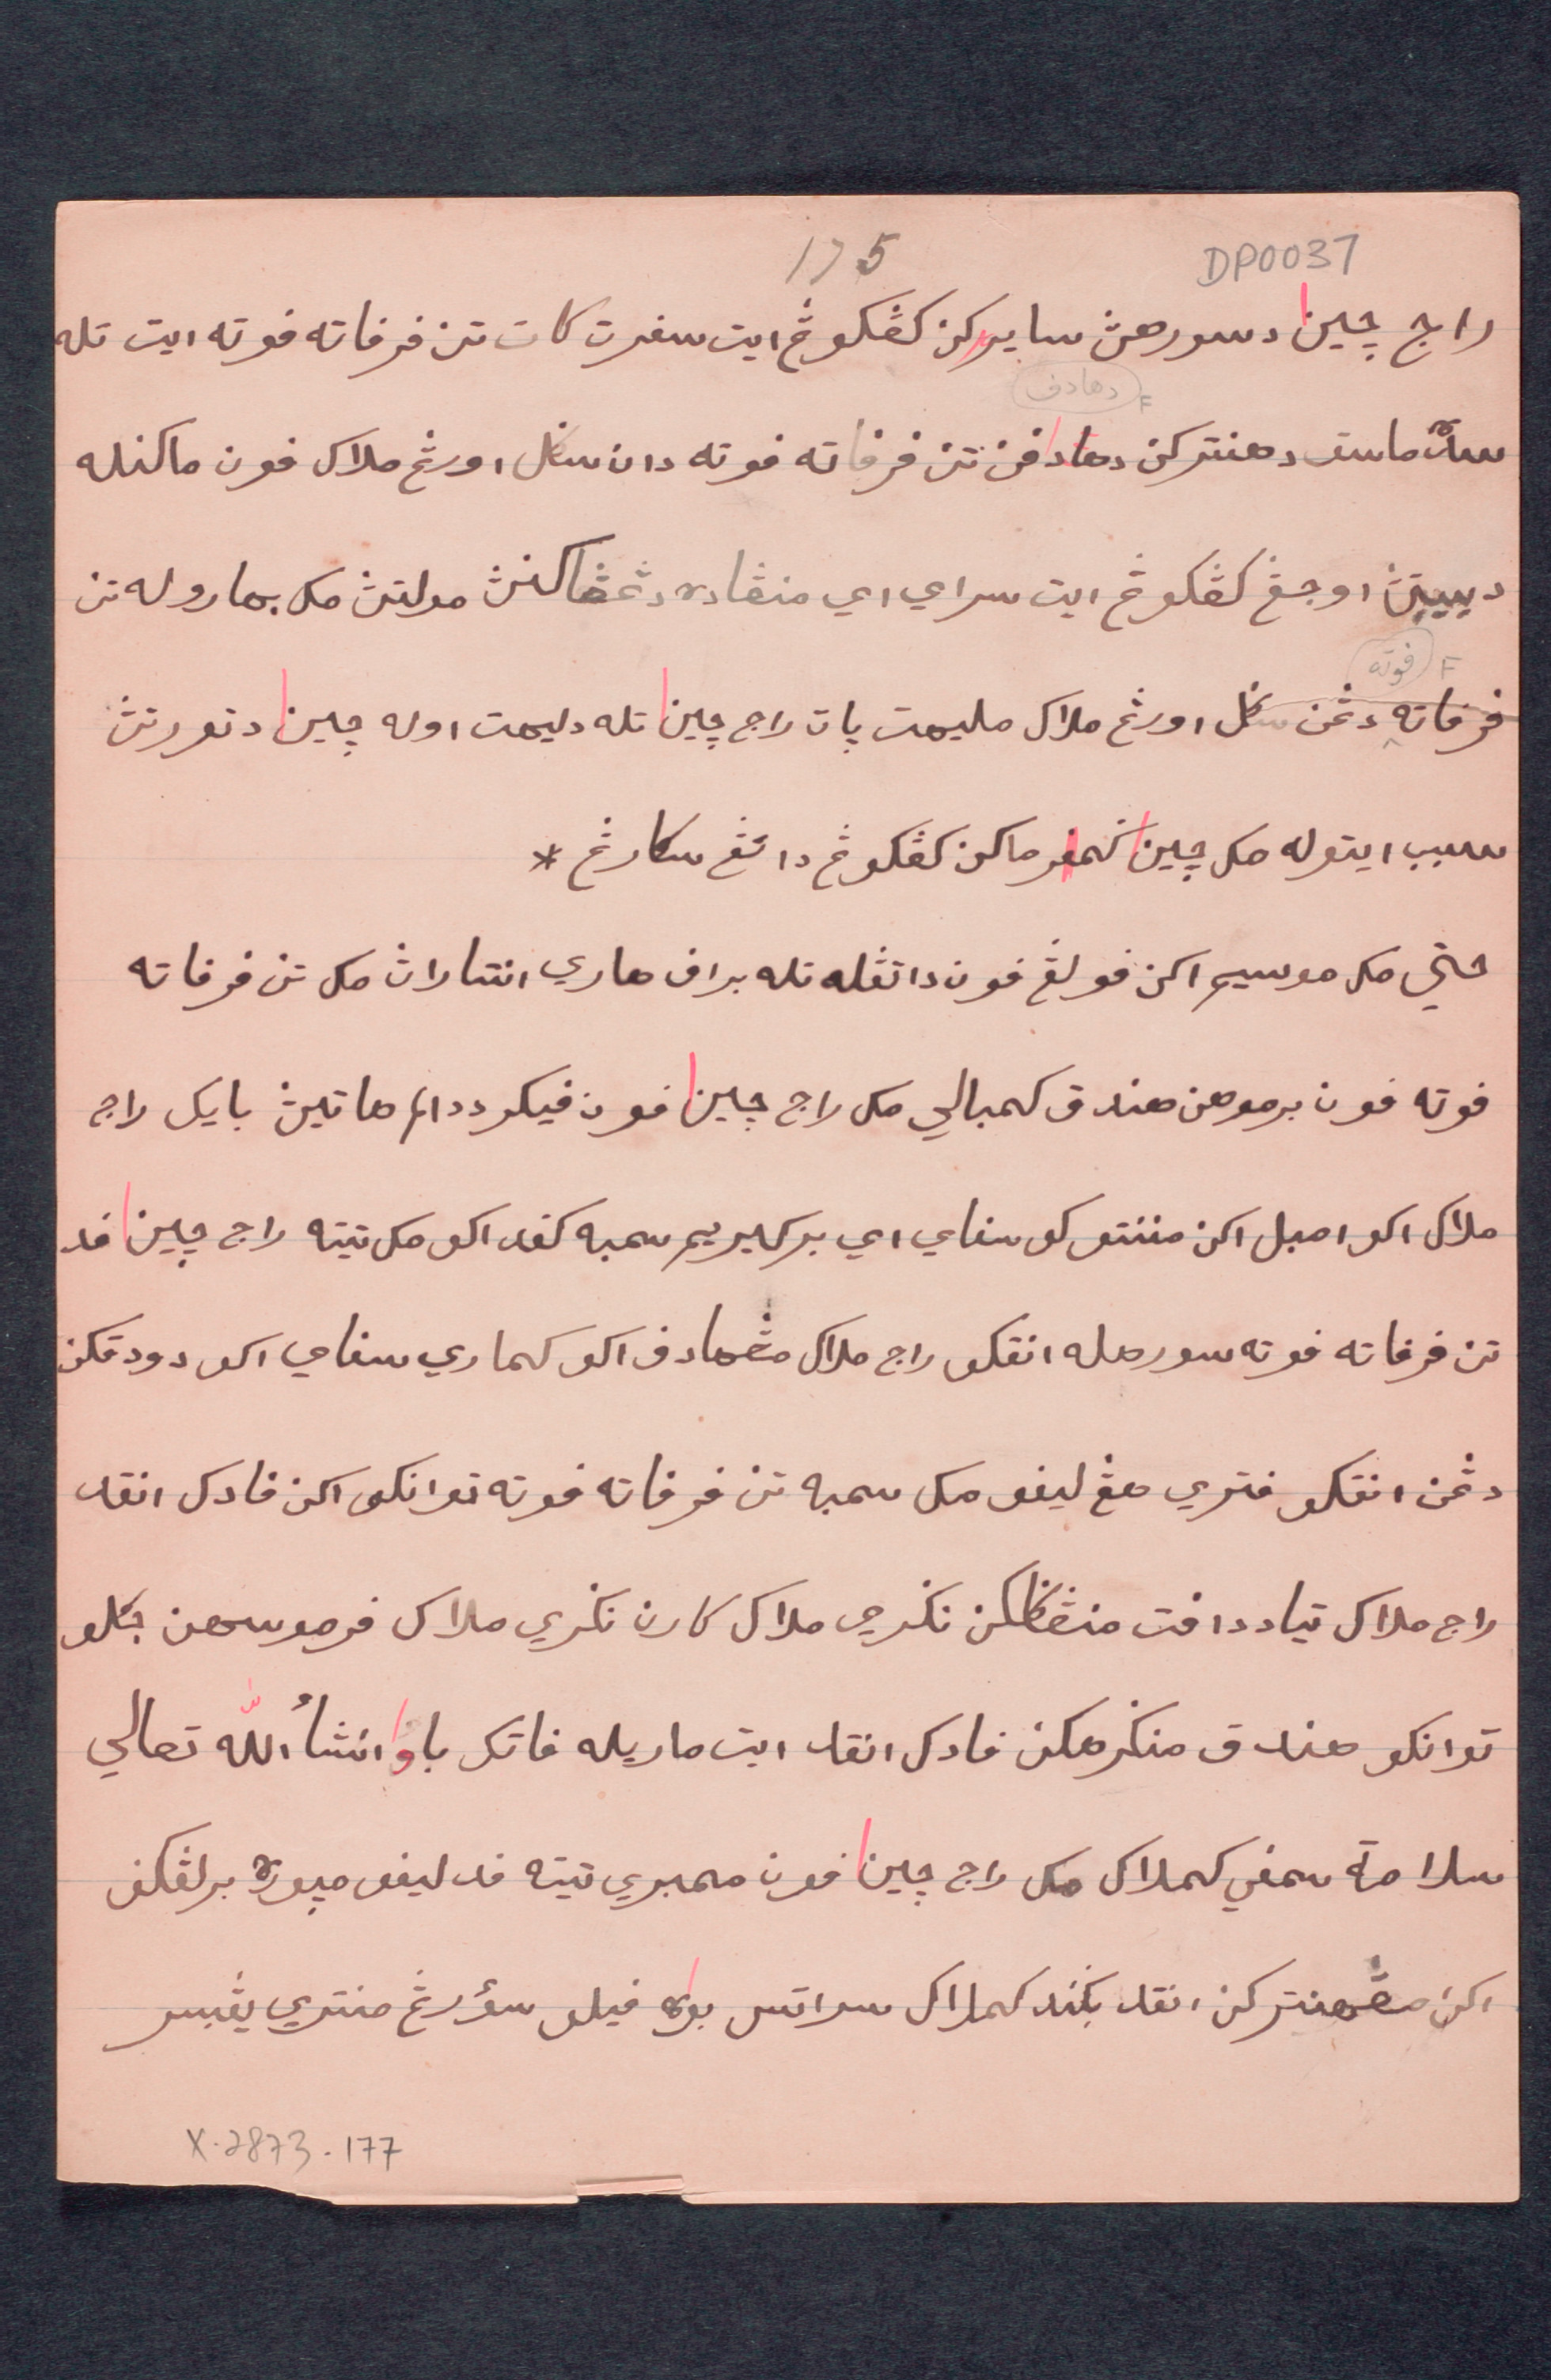 175
DP0037
راج چين دسورهڽ سايركن كڠكوڠ ايت سفرت كات تن فرفاته فوته ايت تله
دهادف
سده ماسق دهنتركن دهادفن تن فرفاته فوته دان سكل اورڠ ملاك فون ماكنله
دبيبتڽ اوجڠ كڠكوڠ ايت سراي اي منڠاده دڠڠاكنڽ مولتڽ مك بهاروله تن
فوته
فرفاته دڠن سكل اورڠ ملاك مليهت ڤات راج چين تله دليهت اوله چين دتوررتڽ
سبب ايتوله مك چين ماكن كڠكوڠ داتڠ سكارڠ *
حتي مك موسيم اكن فولڠ فون داتڠله تله براف هاري انتاراڽ مك تن فرفاته
فوته فون برموهن هندق كمبالي مك راج چين فون فيكر ددالم هاتيڽ بايك راج
ملاك اكو امبل اكن منتوكو سفاي اي بركيريم سمبه كفد اكو مك تيته راج چين فد
تن فرفاته فوته سورهله انقكو راج ملاك مڠهادف اكو كماري سفاي اكو دودقكن
دڠن انقكو فتري هڠ ليفو مك سمبه تن فرفاته فوته توانكو اكن فادك انقد
راج ملاك تياد دافت منڠݢلكن نݢري ملاك كارن نݢري ملاك فرموسهن جكلو
توانكو هندق منݢرهكن فادك انقد ايت ماريله فاتك باوا انشاء الله تعالى
سلامة سمفي كملاك مك راج چين فون ممبري تيته فد ليفو مپوره برلڠكف
اكن مڠهنتركن انقد بݢند كملاك سراتس بوه فيلو سؤرڠ منتري يڠبسر
X.2873.177